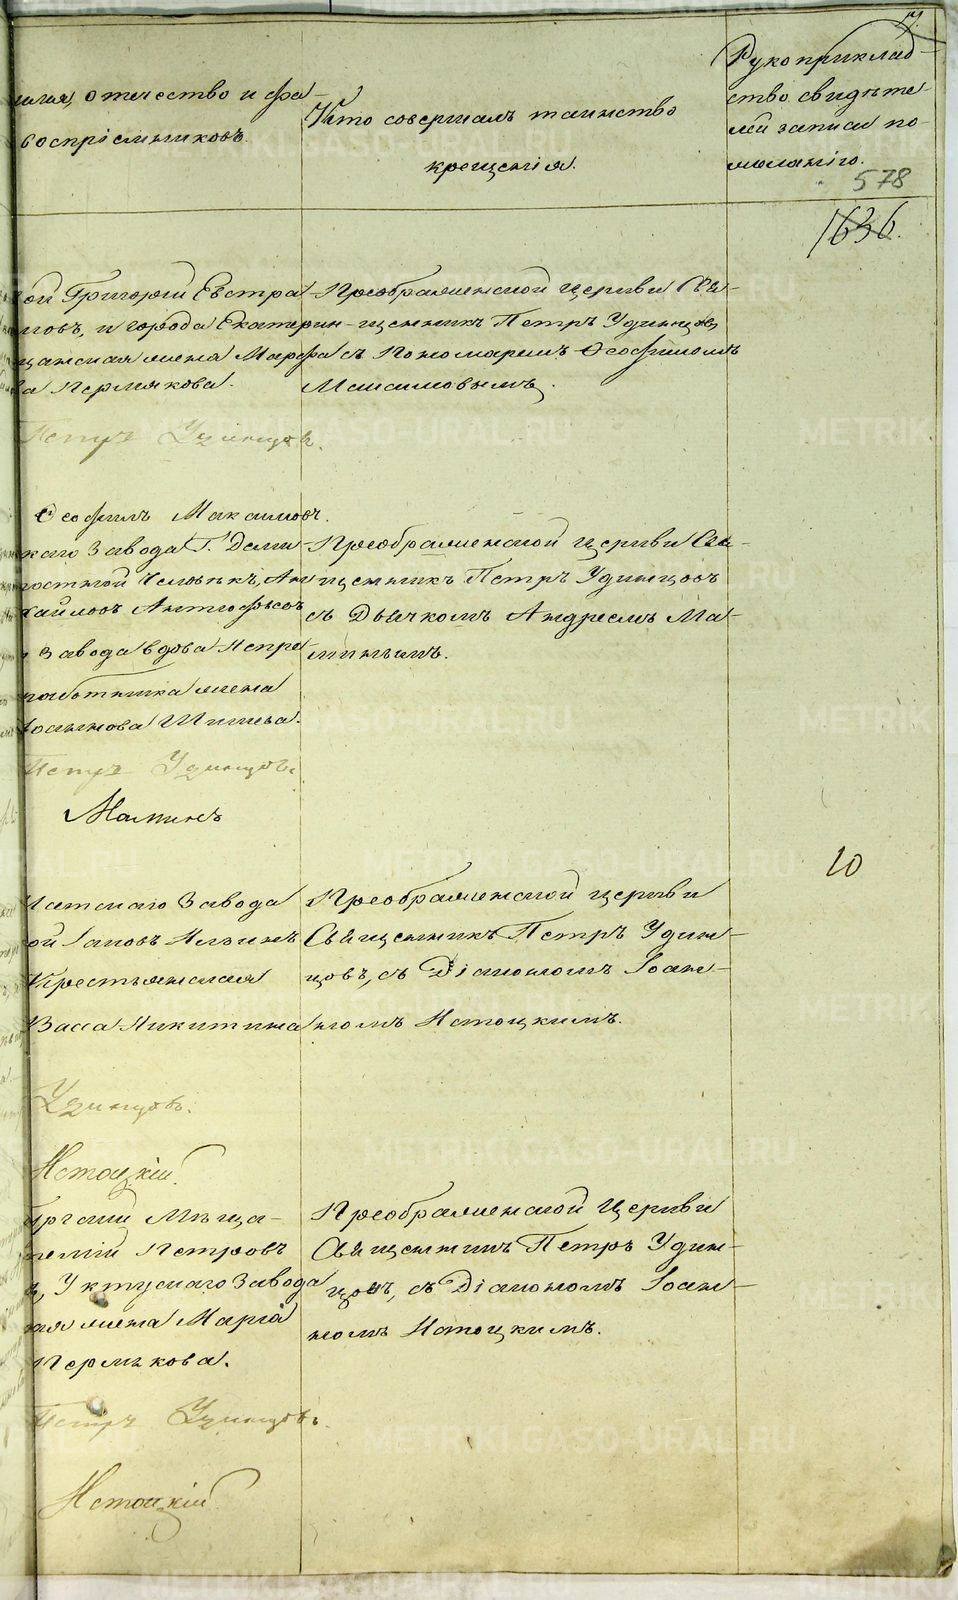 отчество и фа-
воспріемниковъ.
Кто совершалъ таинство
крещенія.
Рукоприклад-
ство свидѣте-
лей записи по
желанію.
578
1636.
ой Григорій Евстра-
и города Екатерин-
жена Марфа
Пермякова.
Преображенской церкви Свя-
щенникъ Петръ Удинцов
съ Пономаремъ Ѳеофиломъ
Максимовымъ.
Петръ Удинцовъ.
Ѳеофилъ Максимовъ.
каго Завода Г. Деми-
Человѣкъ,
Завода вдова
жена
Шишева.
Преображенской церкви Свя-
щенникъ Петръ Удинцовъ
съ Дьячкомъ Андреемъ Ма-
минымъ.
Петръ Удинцовъ.
Маминъ
10
Завода
ой
Крестьянская
Васса Никитина
Преображенской церкви
Священникъ Петръ Удин-
цовъ, съ Діакономъ Іоан-
номъ Нетоцкимъ.
Удинцовъ.
Нетоцкій.
Мѣща-
Петровъ
Уктускаго Завода
жена Марія
Пермякова.
Преображенской Церкви
Священникъ Петръ Удин-
цовъ, съ Діакономъ Іоан-
номъ Нетоцкимъ.
Петръ Удинцовъ.
Нетоцкій
METRIKI.GASO-URAL.RU